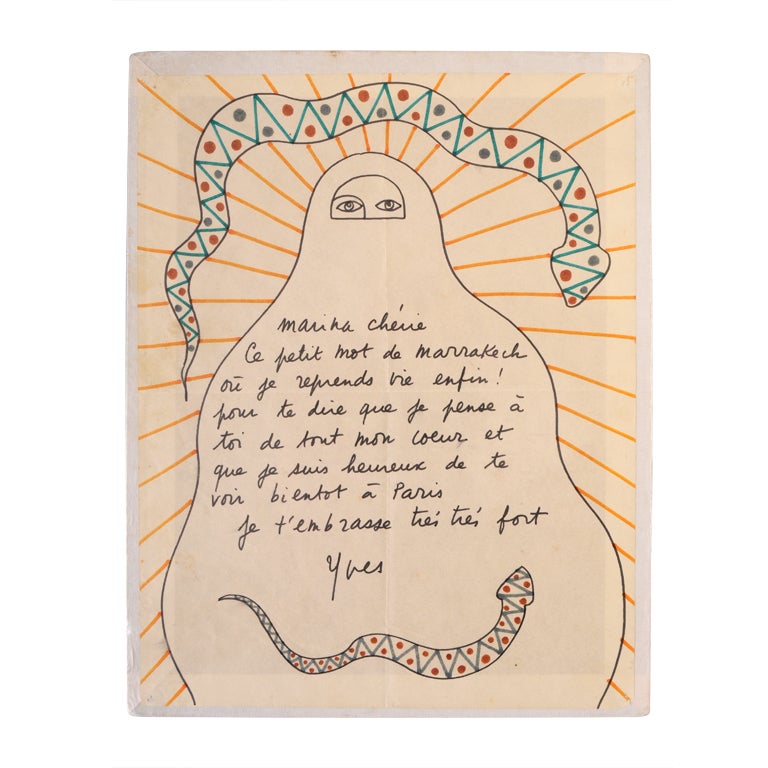 marina chérie
Ce petit mot de Marrakech
où je reprends vie enfin!
pour te dire que je pense à
toi de tout mon coeur et
que je suis heureux de te
voir bientot à Paris
je t'embrasse trés trés fort
Yves